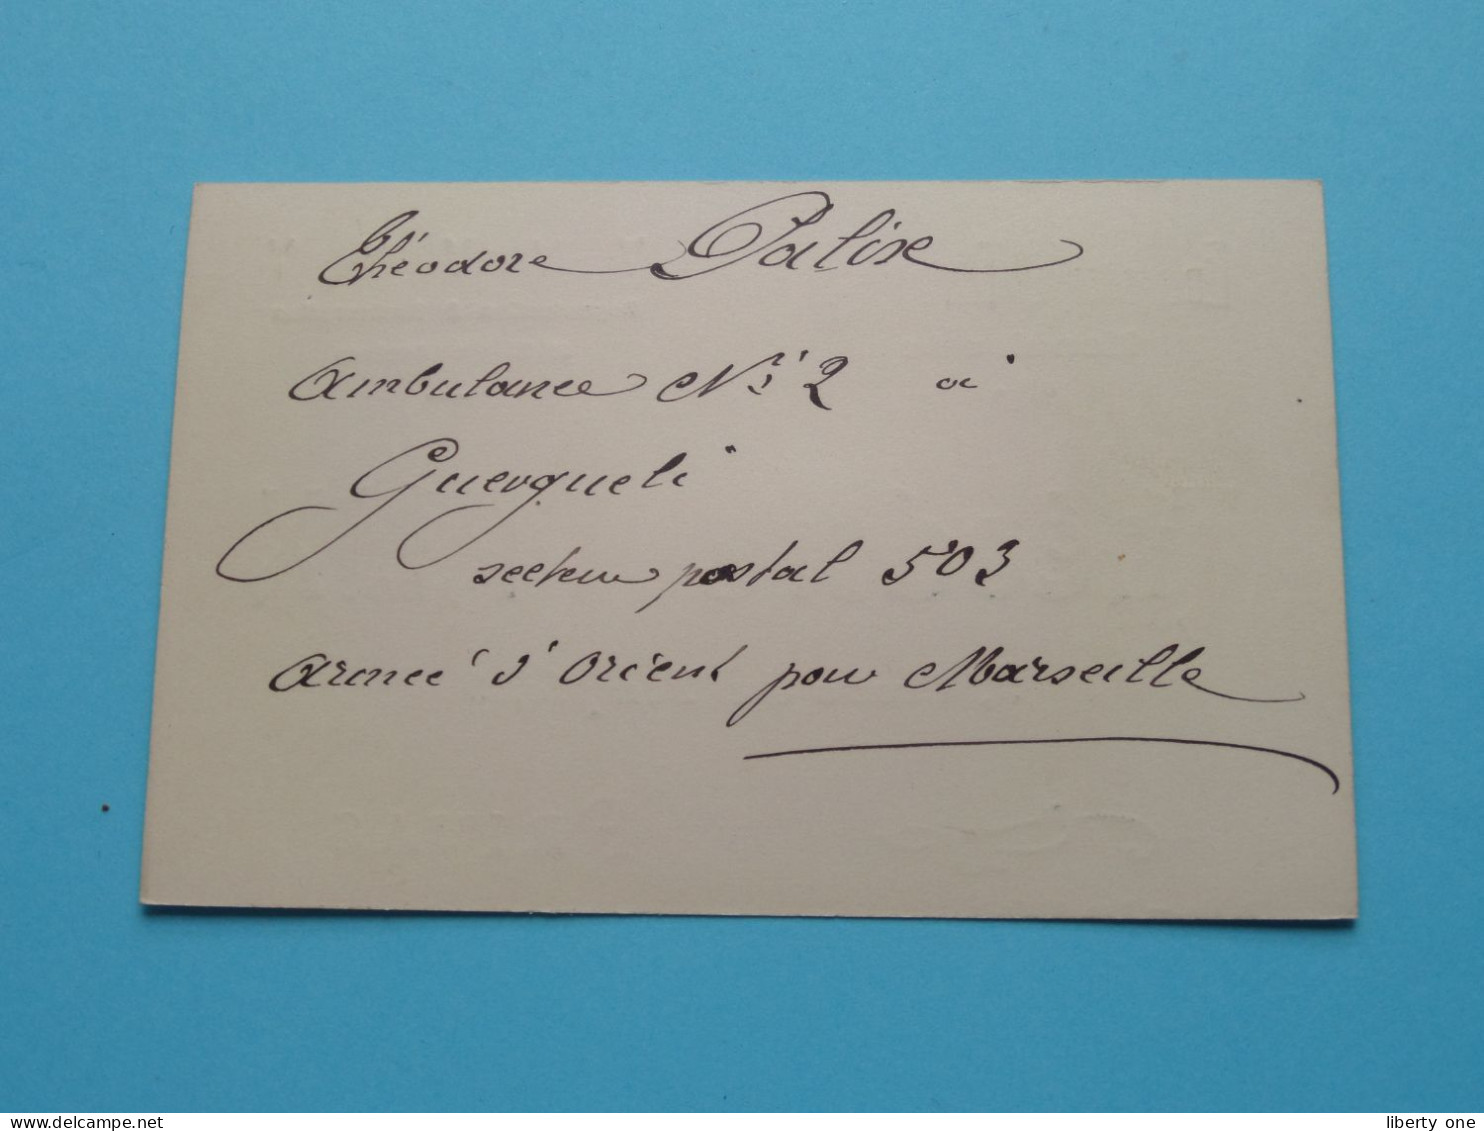 Théodore Patise
Ambulance No 2 à
Guergueli
secteur postal 503
Armée d'Orient pour Marseille
delcampe.net
liberty one